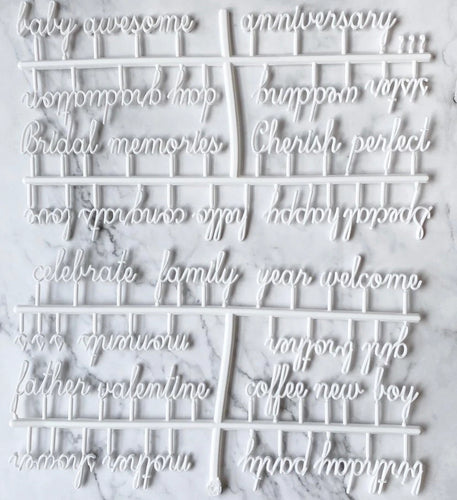 baby awesome anniversary
sister wedding day graduation
Bridal memories Cherish perfect
Special happy hello congrats love
celebrate family year welcome
girl brother moments s s s
father valentine coffee new boy
birthday party mother shower